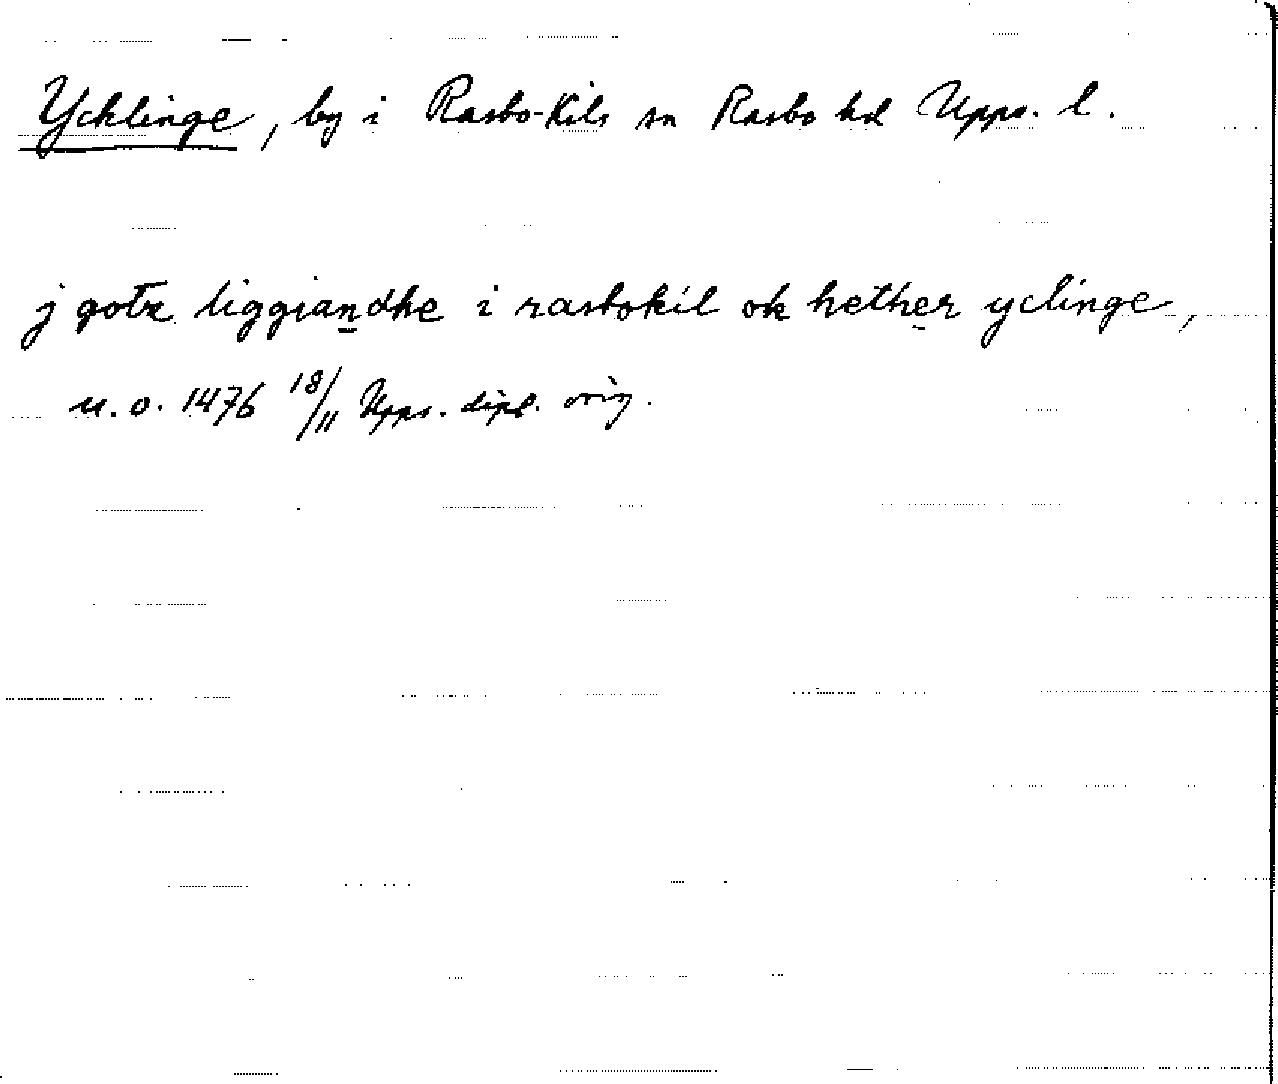 Ycklinge, by i Rasbo-Kils sn Rasbo hd Upps. l.
j gotz liggiandhe i rasbokil ok hether yclinge,
u. o. 1476 18/11 Upps. dipl. orig.